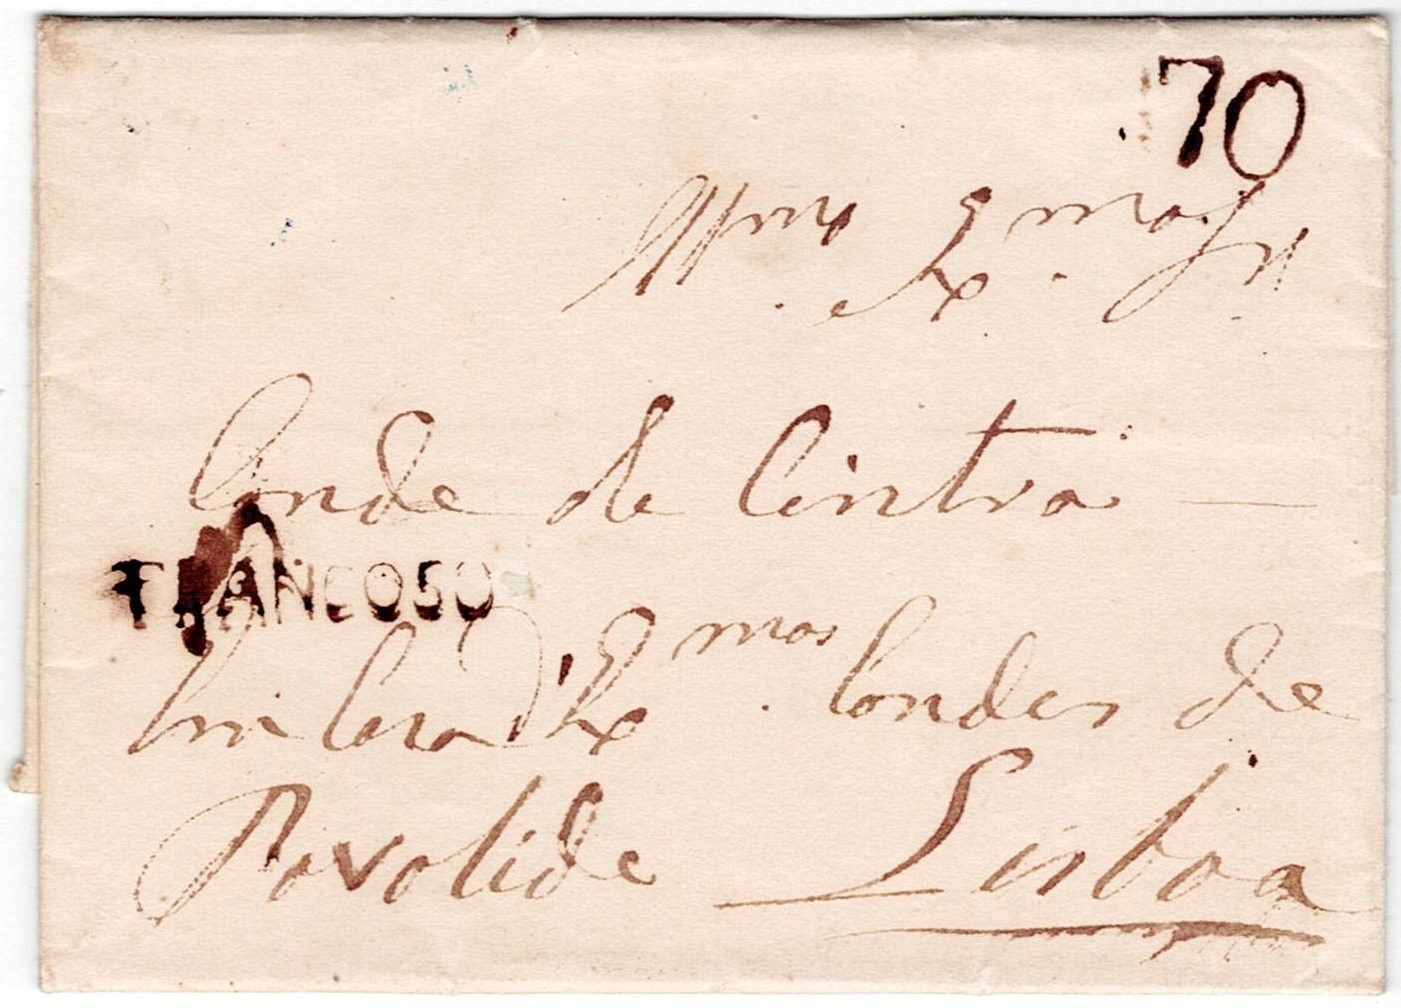 70
Illmo. Exmo. Snr.
Conde de Cintra
TRANCOSO
Em Casa d'Exmos. Condes de
Povolide Lisboa